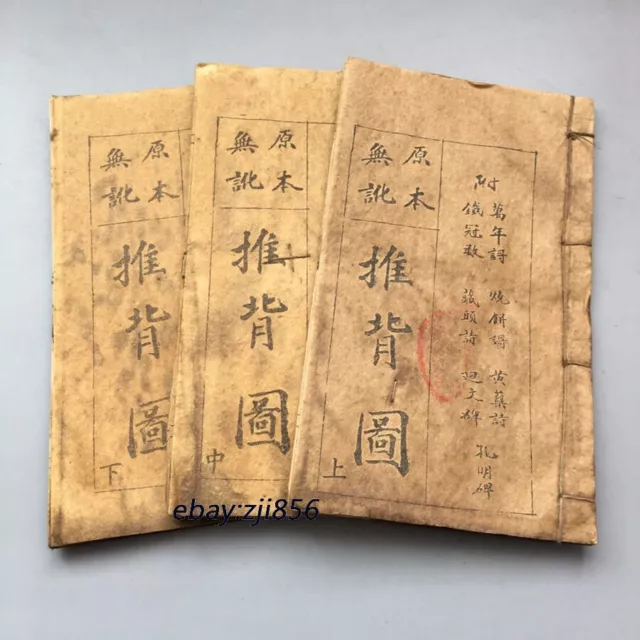 附
萬年謌 燒餅謌 黃蘗詩 孔明碑
藏頭詩 迴文碑
原本
無訛
推背圖
上
原本
無訛
推背圖
中
原本
無訛
推背圖
下
ebay:zji856